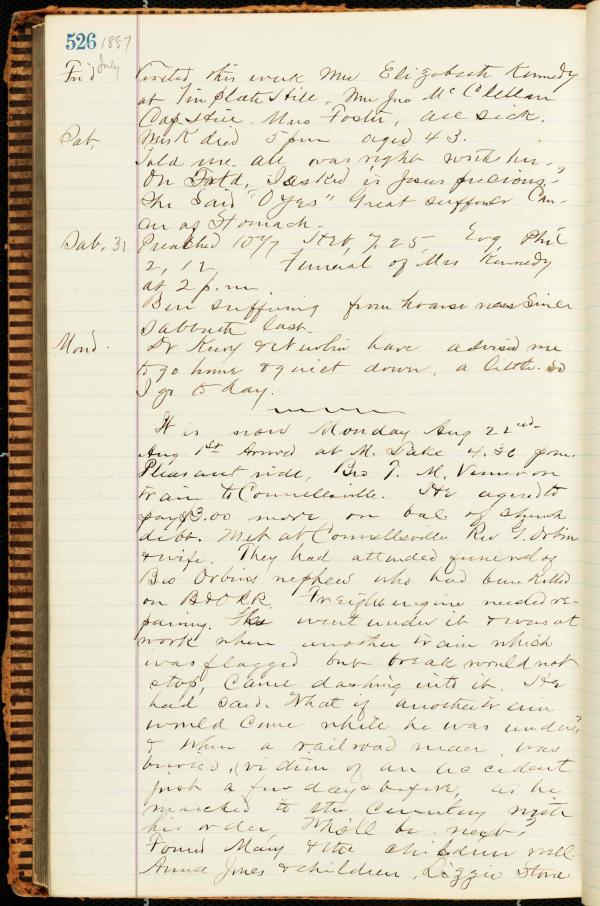 526 1887
July
Frid Visited this week Mrs Elizabeth Kennedy
at Tinplate Hill, Mrs Jno McClellan
Cap Hill. Mrs Foster, all sick.
Sat, Mrs K died 5 pm aged 43.
Told me all was right with her.
On Satd, I asked is Jesus precious?
She Said "O yes" Great sufferer Can-
cer of Stomach.
Sab, 31 Preached 10½ Heb, 7.25, Evg Phil
2, 12, Funeral of Mrs Kennedy
at 2 p.m.
Bin suffering from hoarseness Since
Sabbath last.
Mond. Dr King & Newlin have advised me
to go home & quiet down, a little. So
I go to day.
It is now Monday Aug 22nd
Aug. 1st Arrived at M. Lake 4.36 p.m.
Pleasant ride, Bro T. M. on
train to Connellsville. He agreed to
pay $3.00 more on bal. of church
debt. Met at Connellsville Rev J. Orbin
& wife. They had attended funeral of
Bro Orbins nephew who had been Killed
on B&ORR. Freight engine needed re-
pairing. He went under it & was at
work when another train which
was flagged but break would not
stop, Came dashing into it. He
had said. What if another train
would Come while he was under?
& When a railroad man was
buried, victim of an accident
just a few days before, as he
marched to the cemetery with
his order, Who'll be next?
Found Mary & the children well
Anna Jones & children, Lizzie Stone